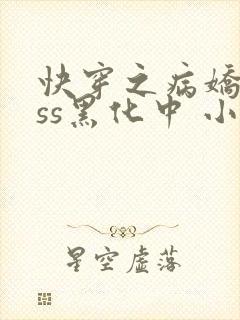 快穿之病嬌
ss黑化中 小
星空虛落